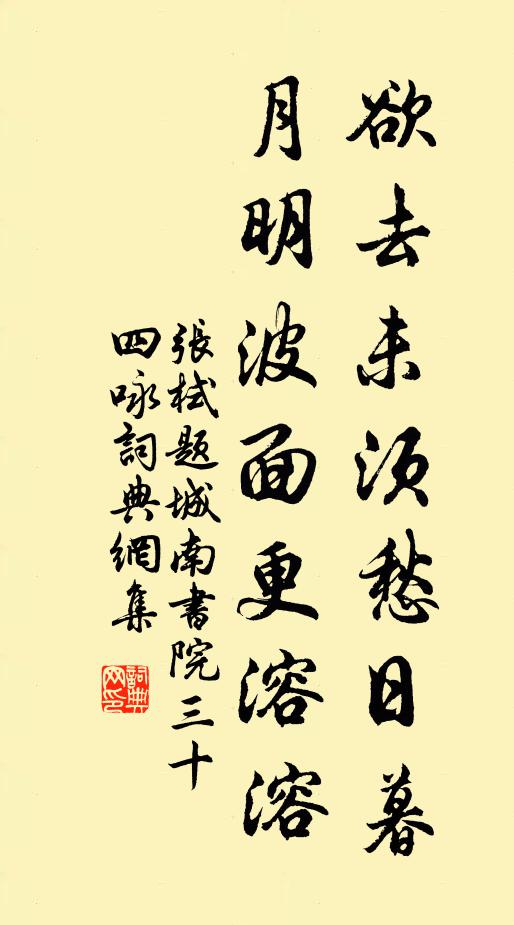 欲去未須愁日暮
月明波面更溶溶
張栻題城南書院三十
四咏詞典網集
詞典
网印